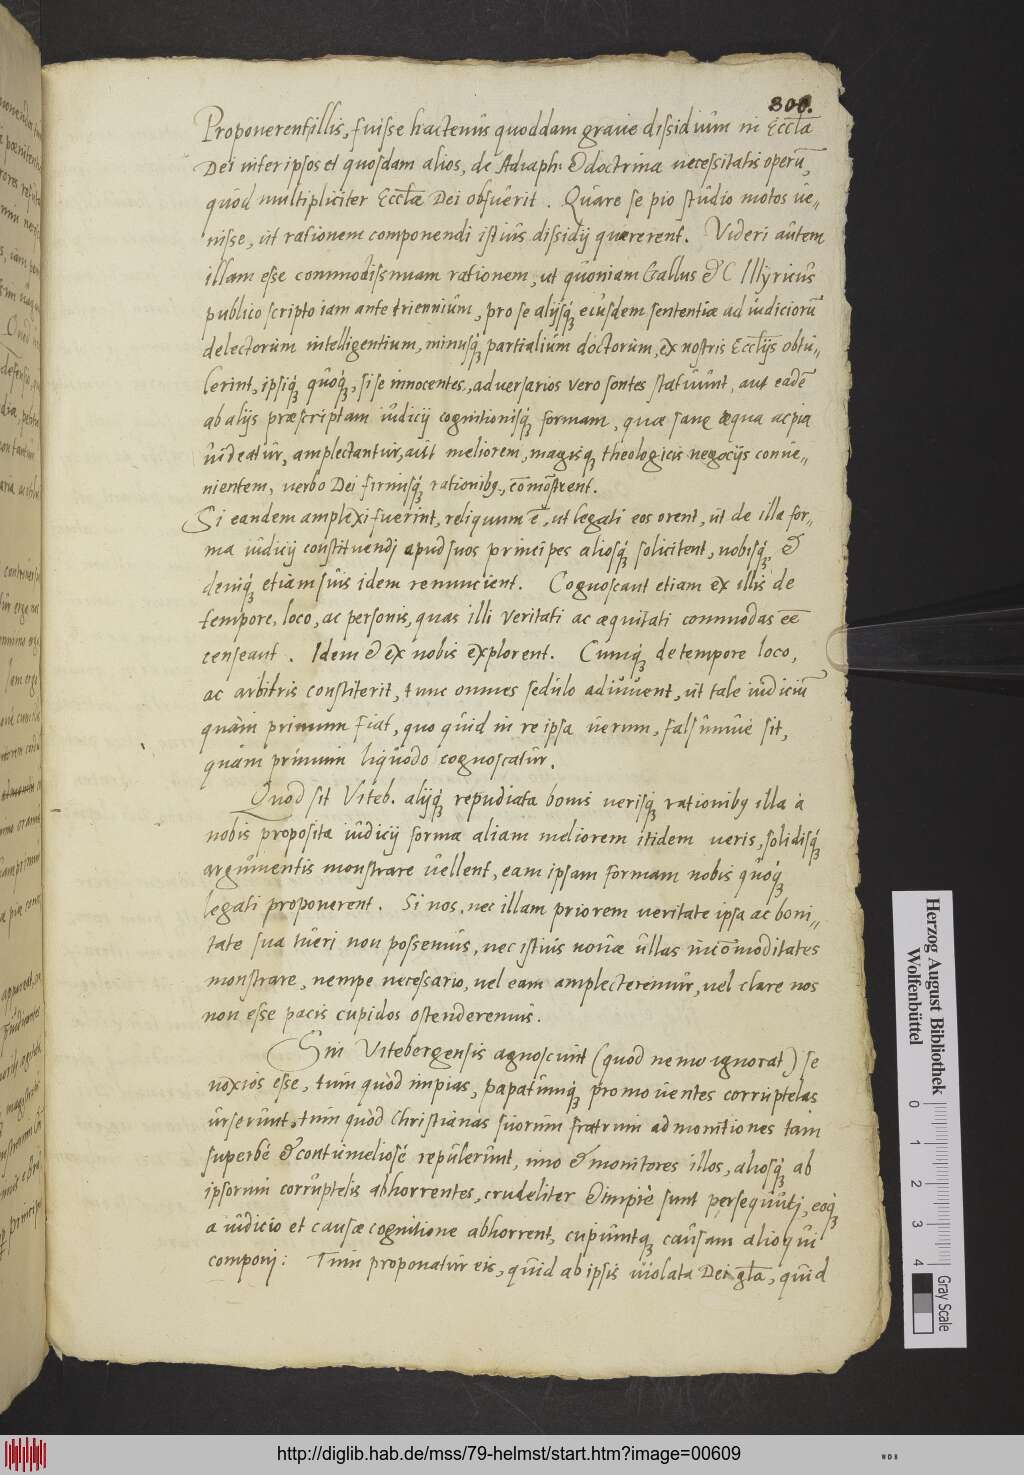 300.
Proponerent illis, fuisse hactenus quoddam graue dissidium in Eccl̄a
Dei inter ipsos et quosdam alios, de Adiaph: & doctrina necessitatis operū,
quòd multipliciter Eccl̄æ Dei obfuerit. Quare se pio studio motos ue„
nisse, ut rationem componendi istius dissidij quærerent. Videri autem
illam esse commodissimam rationem, ut quoniam Gallus & Illyricus
publico scripto iam ante triennium, pro se alijsq́ꝫ eiusdem sententiæ ad iudiciorū
delectorum intelligentium, minusq́ꝫ partialium doctorum, ex nostris Eccl̄ijs obtu„
lerint, ipsiq́ꝫ quoq́ꝫ, si se innocentes, aduersarios vero sontes statuunt, aut eadē
ab alijs præscriptam iudicij cognitionisq́ꝫ formam, quæ sanę æqua ac pia
uideatur, amplectantur, aut meliorem, magisqꝫ theologicis negocijs conue„
nientem, uerbo Dei firmisq́ꝫ rationibꝯ, cōmōstrent.
Si eandem amplexi fuerint, reliquum ē, ut legati eos orent, ut de illa for„
ma iudicij constituendi apud suos principes aliosq́ꝫ solicitent, nobisq́ꝫ &
deniq́ꝫ etiam suis idem renuncient. Cognoscant etiam ex illis de
tempore, loco, ac personis, quas illi veritati ac æquitati commodas eē
censeant. Idem & ex nobis explorent. Cumq́ꝫ de tempore loco,
ac arbitris constiterit, tunc omnes sedulo adiuuent, ut tale iudiciū
quàm primum fiat, quo quid in re ipsa uerum, falsumúe sit,
quàm primum liquido cognoscatur.
Quod sit Viteb. alijq́ꝫ repudiata bonis uerisq́ꝫ rationibꝯ illa à
nobis proposita iudicij forma aliam meliorem itidem ueris, solidisq́ꝫ
argumentis monstrare uellent, eam ipsam formam nobis quoq́ꝫ
legati proponerent. Si nos, nec illam priorem ueritate ipsa ac boni„
tate sua tueri non possemus, nec istius nouæ ullas incōmoditates
monstrare, nempe necessario, uel eam amplecteremur, uel clare nos
non esse pacis cupidos ostenderemus.
Sin Vitebergensis agnoscunt (quod nemo ignorat) se
noxios esse, tum quòd impias, papatumq́ꝫ promouentes corruptelas
urserunt, tum quòd Christianas suorum fratrum admonitiones tam
superbè & contumeliosè repulerunt, imo & monitores illos, aliosq́ꝫ ab
ipsorum corruptelis abhorrentes, crudeliter & impiè sunt persequuti, eoq́ꝫ
a iudicio et causæ cognitione abhorrent, cupiuntqꝫ causam alioqui
componi: Tum proponatur eis, quid ab ipsis uiolata Dei gl̄a, quid
Herzog August Bibliothek
Wolfenbüttel
0 1 2 3 4
Gray Scale
http://diglib.hab.de/mss/79-helmst/start.htm?image=00609